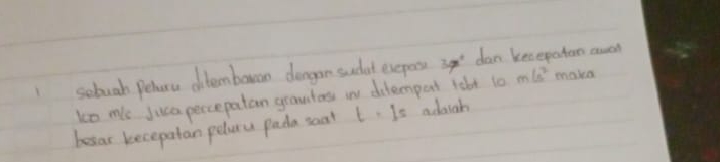 1 sebuah peluru ditembakan dengan sudut elepasi 37° dan kecepatan awal
100 m/s jika percepatan gravitasi ditempat tsbt 10 m/s² maka
besar kecepatan peluru pada saat t = 1s adalah